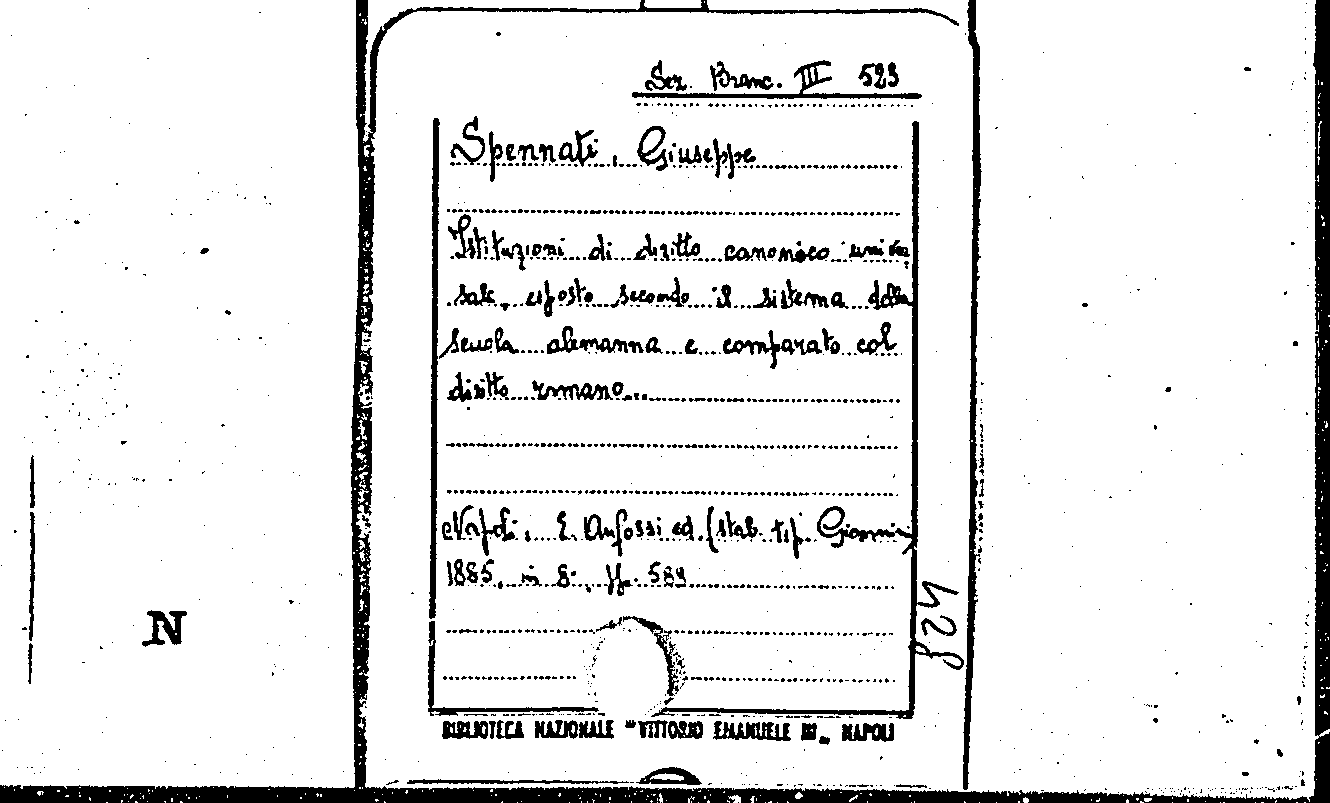 Sez. Branc. III 523
Spennati, Giuseppe
Istituzioni di diritto canonico univer
sale, esposto secondo il sistema della
scuola alemanna e comparato col
diritto romano...
Napoli, E. Anfossi ed. (stab. tip.
1885, in 8°, pp. 584
824
N
BIBLIOTECA NAZIONALE "VITTORIO EMANUELE III„ NAPOLI